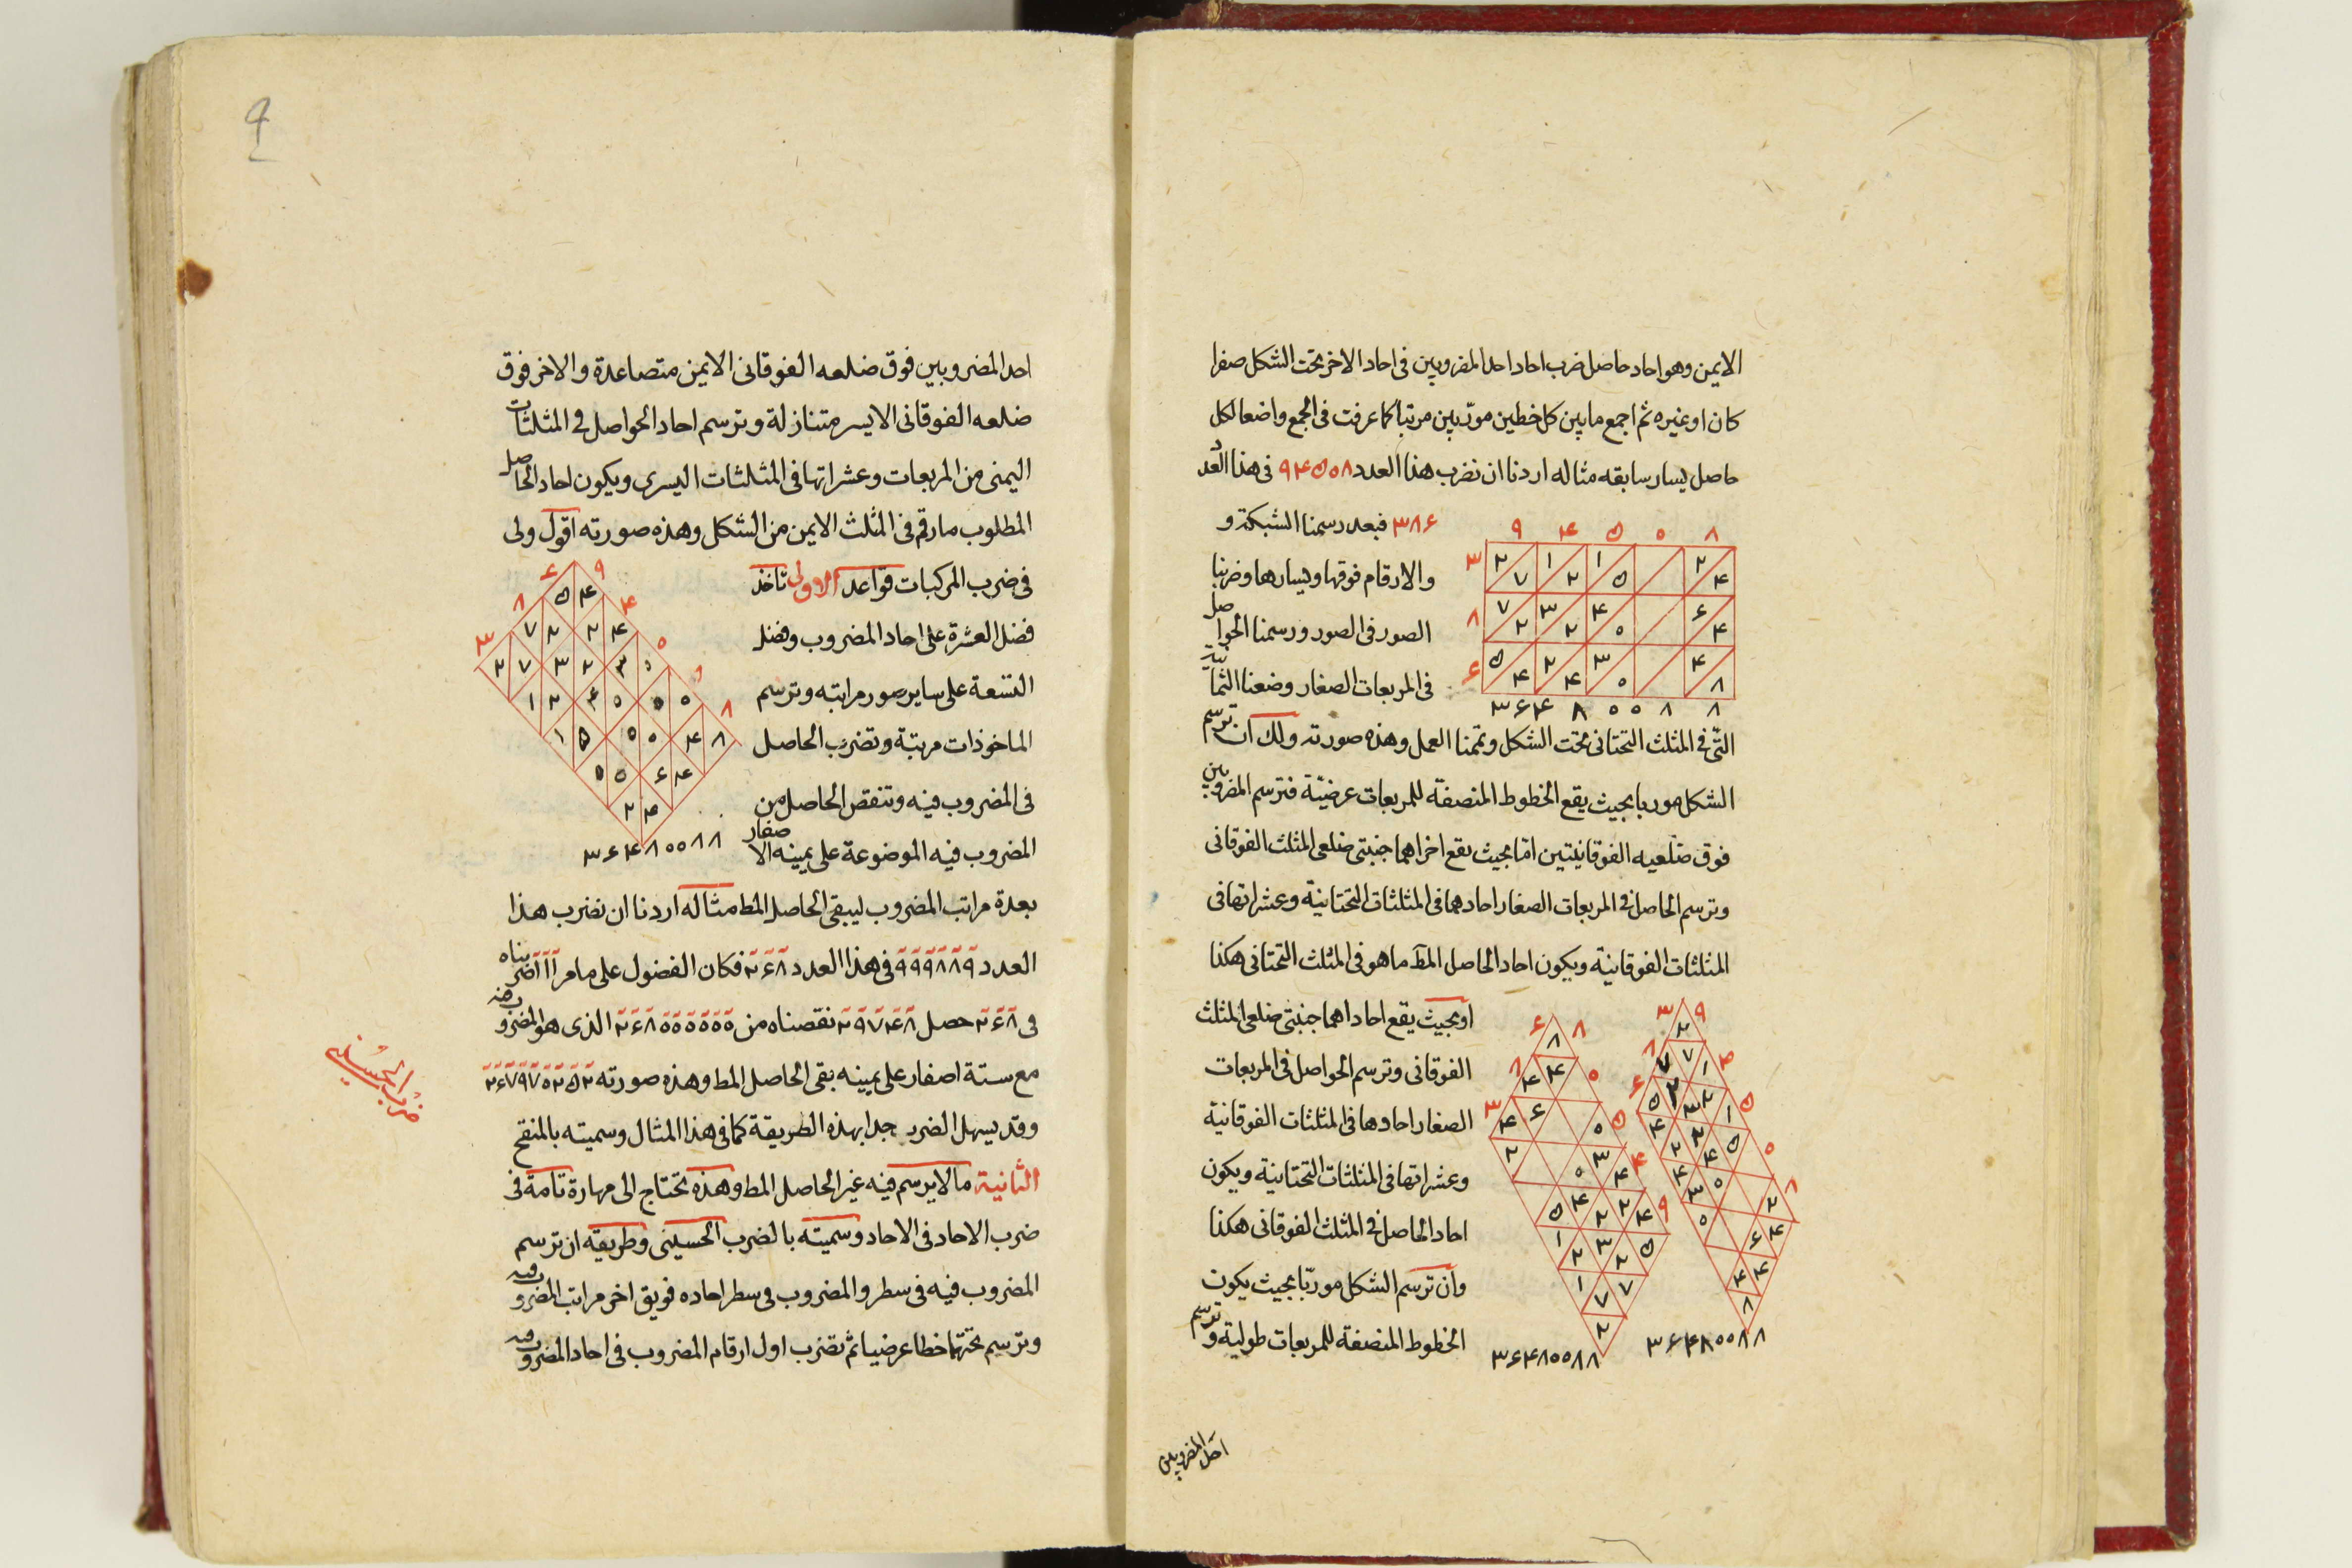 الايمن وهو احاد حاصل ضرب احاد احد المضروبين فى احاد الاخر تحت الشكل صفرا
كان او غيره ثم اجمع ما بين كل خطين موربين مرتبا كما عرفت فى الجمع واضعا لكل
حاصل يسار سابقه مثاله اردنا ان نضرب هذا العدد ۹۴۵۰۸ فى هذا العدد
۳۸۶ فبعد رسمنا الشبكة و
والارقام فوقها ويسارها وضربنا
الصور فى الصور ورسمنا الحواصل
فى المربعات الصغار وضعنا الثمانية
۹ ۴ ۵ ۰ ۸
۳ ۲ ۷ ۱ ۲ ۱ ۵ ۲ ۴
۸ ۷ ۲ ۳ ۲ ۴ ۰ ۶ ۴
۶ ۵ ۴ ۲ ۴ ۳ ۰ ۴ ۸
۳۶۴۸۰۰۸۸
التى فى المثلث التحتانى تحت الشكل وتممنا العمل وهذه صورته ولك ان ترسم
الشكل موربا بحيث يقع الخطوط المنصفة للمربعات عرضية فترسم المضروبين
فوق ضلعيه الفوقانيتين اما بحيث يقع اخراهما جنبتى ضلعى المثلث الفوقانى
وترسم الحاصل فى المربعات الصغار احادهما فى المثلثات التحتانية وعشراتها فى
المثلثات الفوقانية ويكون احاد الحاصل المط ما هو فى المثلث التحتانى هكذا
او بحيث يقع احاداهما جنبتى ضلعى المثلث
الفوقانى وترسم الحواصل فى المربعات
الصغار احادها فى المثلثات الفوقانية
وعشراتها فى المثلثات التحتانية ويكون
احاد الحاصل فى المثلث الفوقانى هكذا
وان ترسم الشكل موربا بحيث يكون
الخطوط المنصفة للمربعات طولية وترسم
۳۶۴۸۰۰۸۸
۳۶۴۸۰۰۸۸
احد المضروبين
احد المضروبين فوق ضلعه الفوقانى الايمن متصاعدة والاخر فوق
ضلعه الفوقانى الايسر متنازلة وترسم احاد الحواصل فى المثلثات
اليمنى من المربعات وعشراتها فى المثلثات اليسرى ويكون احاد الحاصل
المطلوب ما رقم فى المثلث الايمن من الشكل وهذه صورته اقول ولى
فى ضرب المركبات قواعد الاولى تاخذ
فضل العشرة على احاد المضروب وفضل
التسعة على ساير صور مراتبه وترسم
الماخوذات مرتبة وتضرب الحاصل
فى المضروب فيه وتنقص الحاصل من
المضروب فيه الموضوعة على يمينه الاصفار
۳۶۴۸۰۰۸۸
بعدة مراتب المضروب ليبقى الحاصل المط مثاله اردنا ان نضرب هذا
العدد ۹۹۹۸۸۹ فى هذا العدد ۲۶۸ فكان الفضول على ما مر ۱۱۱ ضربناه
فى ۲۶۸ حصل ۲۹۷۴۸ نقصناه من ۲۶۸۰۰۰۰۰۰ الذى هو المضروب فيه
مع ستة اصفار على يمينه بقى الحاصل المط وهذه صورته ۲۶۷۹۷۰۲۵۲
وقد يسهل الضرب جدا بهذه الطريقة كما فى هذا المثال وسميته بالمنقح
الثانية ما لا يرسم فيه غير الحاصل المط وهذه تحتاج الى مهارة تامة فى
ضرب الاحاد فى الاحاد وسميته بالضرب الحسينى وطريقه ان ترسم
المضروب فيه فى سطر والمضروب فى سطر احاده فويق اخر مراتب المضروب فيه
وترسم تحتهما خطا عرضيا ثم تضرب اول ارقام المضروب فى احاد المضروب فيه
ضرب الحسينى